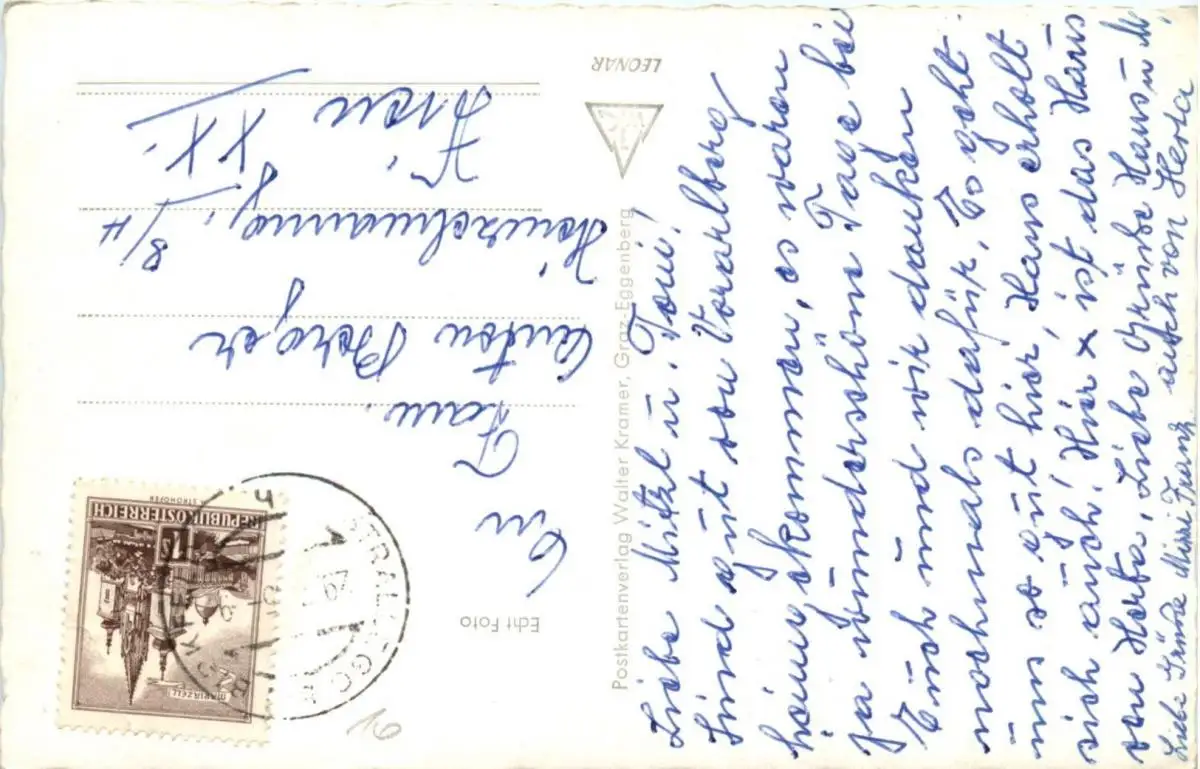 Liebe Mitzl u. Toni!
Sind gut von Vorarlberg
heimgekommen, es waren
ja wunderschöne Tage bei
Euch und wir danken
nochmals dafür. Es geht
uns so gut hier, Hans erholt
sich auch. Hier x ist das Haus
von Herta. Liebe Grüße Hans u M.
Liebe Grüße Mimi Franz auch von Herta
An
Fam.
Anton Berger
8/H
Wien
XXI.
Echt Foto
Postkartenverlag Walter Kramer, Graz-Eggenberg
LEONAR
REPUBLIK ÖSTERREICH
1 S
MARIAZELL
STRALLEGG